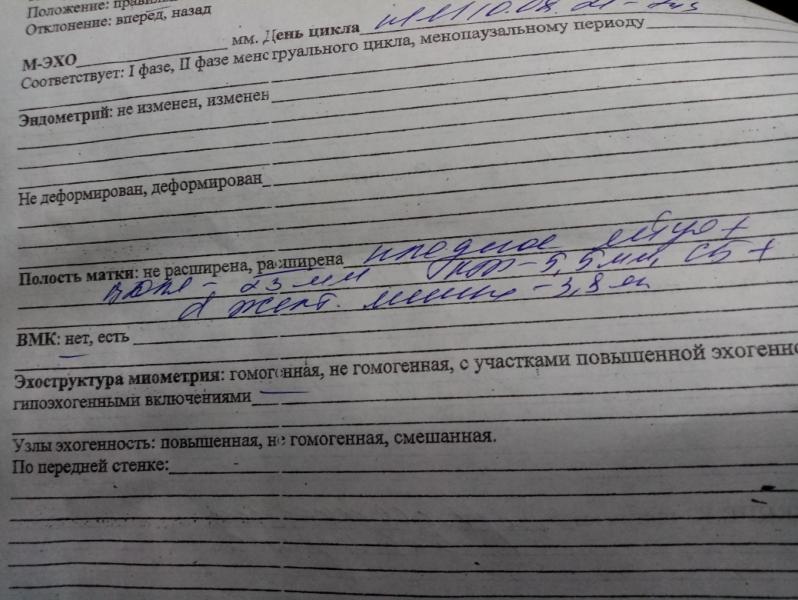 Положение:
Отклонение: вперед, назад
М-ЭХО мм. День цикла
Соответствует: I фазе, II фазе менструального цикла, менопаузальному периоду
Эндометрий: не изменен, изменен
Не деформирован, деформирован
Полость матки: не расширена, расширена плодное яйцо +
- 23 мм КТР - 5,5 мм, СБ +
d желт. мешка - 3,8 мм
ВМК: нет, есть
Эхоструктура миометрия: гомогенная, не гомогенная, с участками повышенной
гипоэхогенными включениями
Узлы эхогенность: повышенная, не гомогенная, смешанная.
По передней стенке: